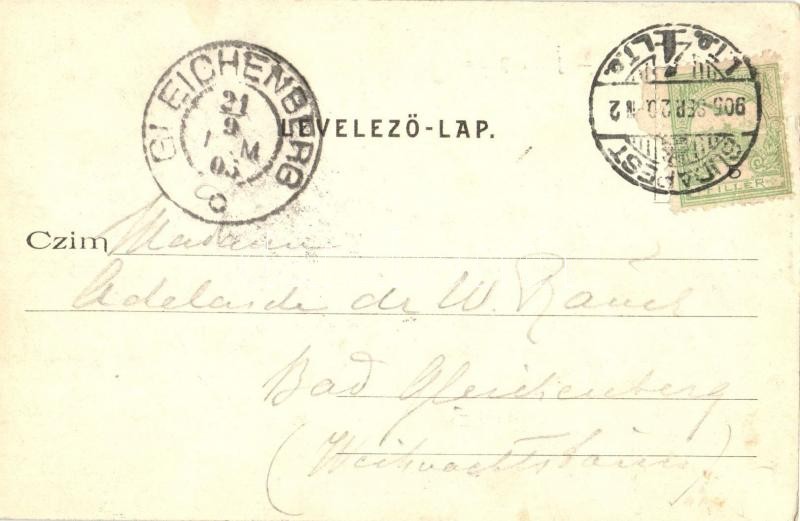 GLEICHENBERG
21
9
M
05
LEVELEZŐ-LAP.
BUDAPEST
905 SZEP 20
FILLER
Czim Madame
Adelaide de W. Rauch
Bad Gleichenberg
(